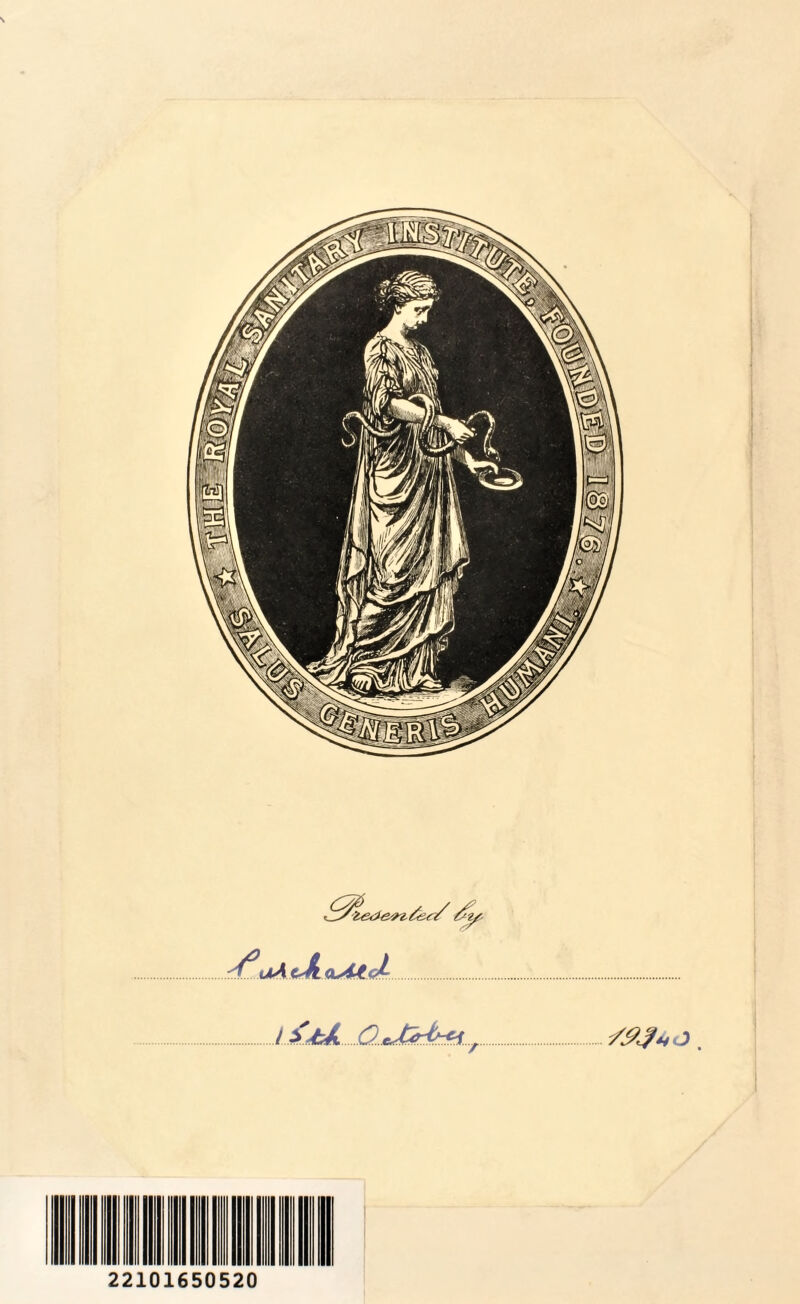 THE ROYAL SANITARY INSTITUTE, FOUNDED 1876.
SALUS GENERIS HUMANI.
Presented by
Purchased
15th October, 1940.
22101650520